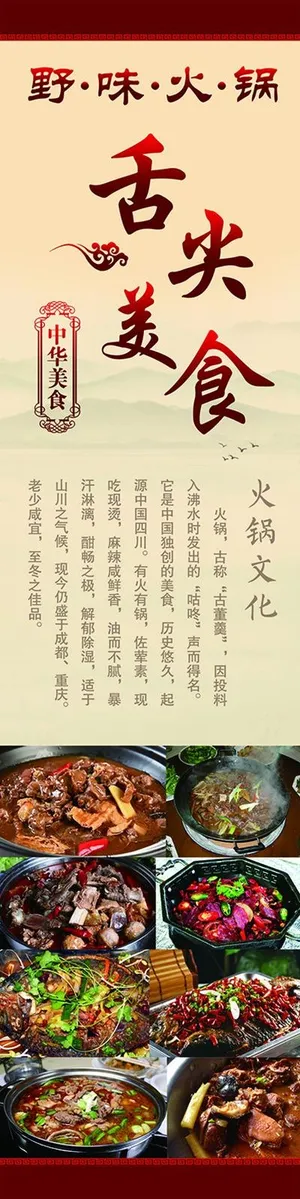 野·味·火·锅
舌尖
美食
中华美食
火锅文化
火锅，古称“古董羹”，因投料
入沸水时发出的“咕咚”声而得名。
它是中国独创的美食，历史悠久，起
源中国四川。有火有锅，佐荤素，现
吃现烫，麻辣咸鲜香，油而不腻，暴
汗淋漓，酣畅之极，解郁除湿，适于
山川之气候，现今仍盛于成都、重庆。
老少咸宜，至冬之佳品。